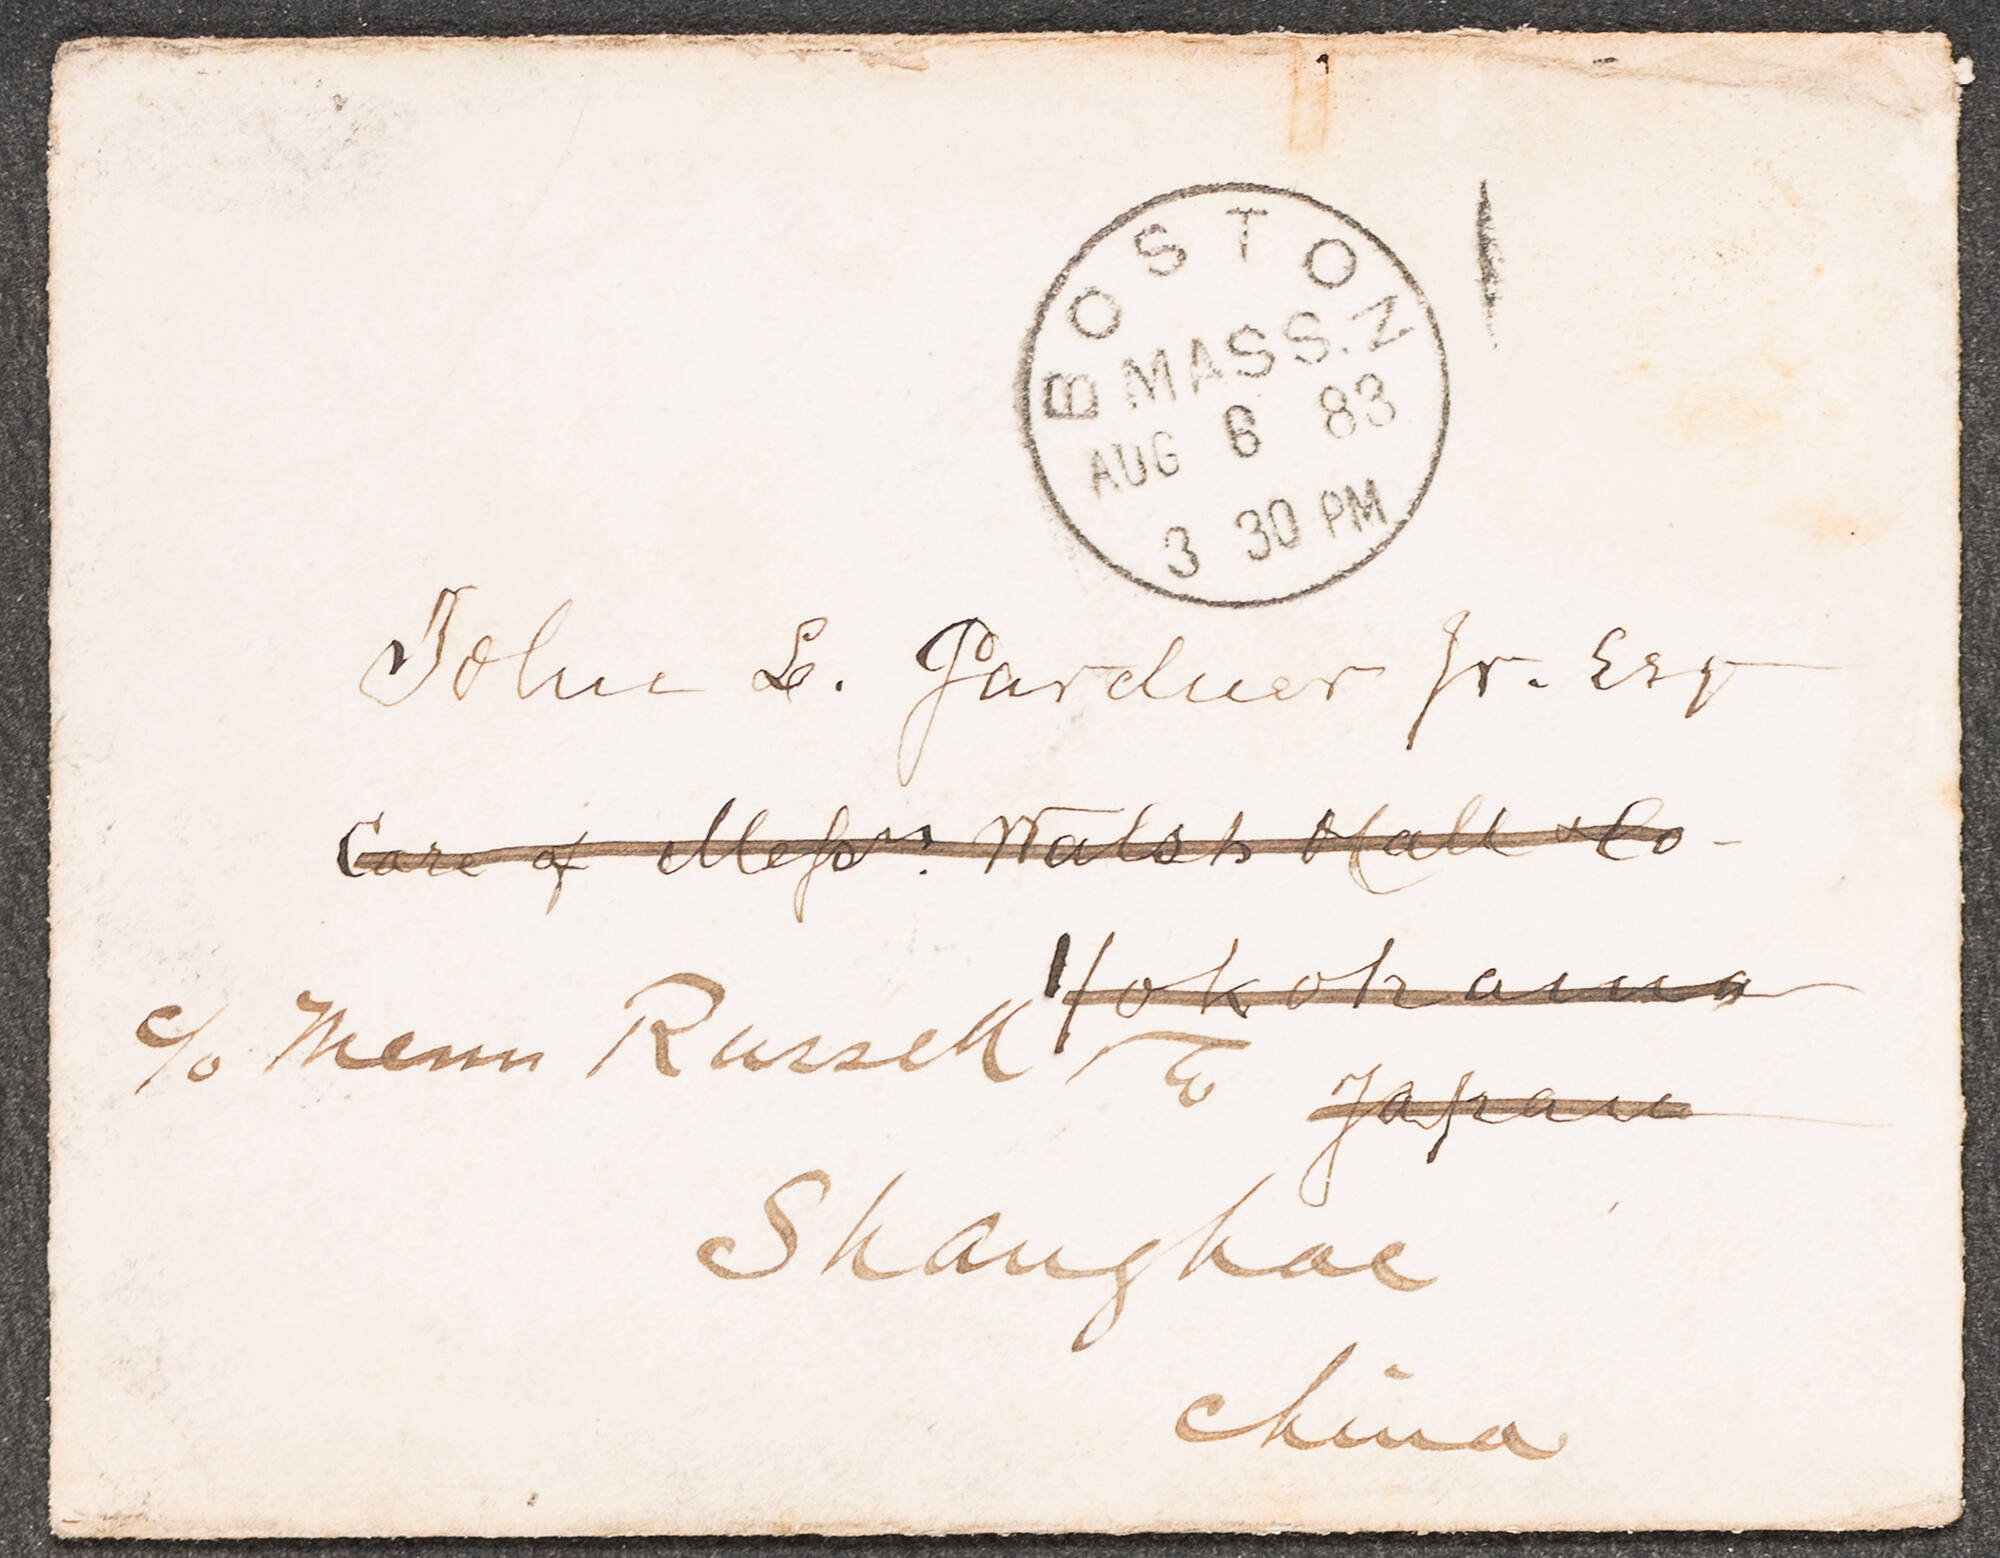 BOSTON
MASS.
AUG 6 83
3 30 PM
John L. Gardner Jr. Esq
Care of Messrs. Walsh Hall & Co-
Yokohama
c/o Messrs Russell & Co
Japan
Shanghae
China